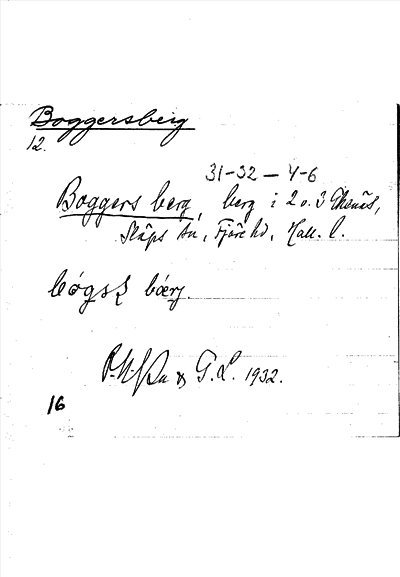 Boggersberg
12.
31-32 — 4-6
Boggers berg, berg i 2 o. 3 Ekenäs,
Släps sn, Fjäre hd, Hall. l.
bérj.
G. L. 1932.
16